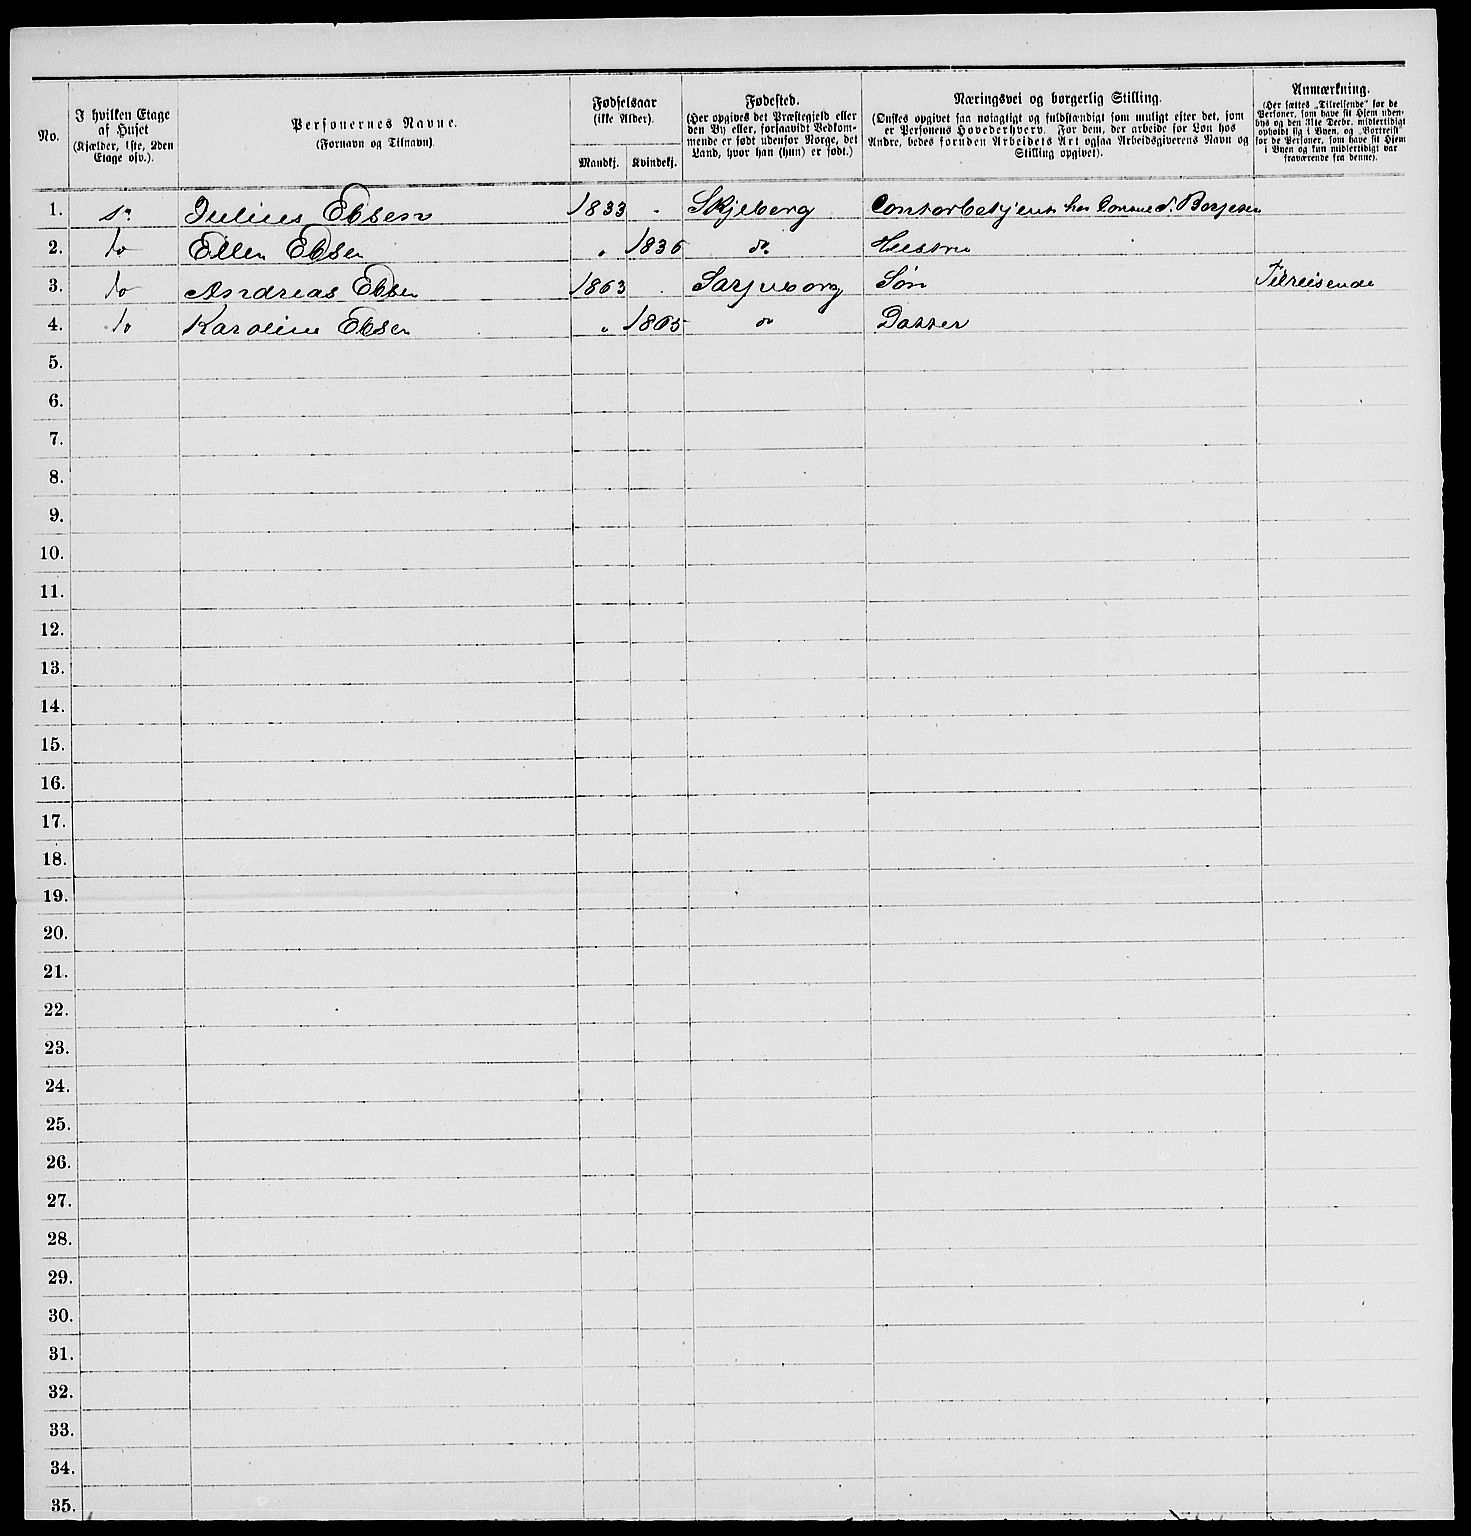 No.
I hvilken Etage
af Huset
(Kjælder, 1ste, 2den
Etage osv.).
Personernes Navne.
(Fornavn og Tilnavn).
Fødselsaar
(ikke Alder).
Mandkj.
Kvindekj.
Fødested.
(Her opgives det Præstegjeld eller
den By eller, forsaavidt Vedkom-
mende er født udenfor Norge, det
Land, hvor han (hun) er født.)
Næringsvei og borgerlig Stilling.
(Ønskes opgivet saa nøiagtigt og fuldstændigt som muligt efter det, som
er Personens Hovederhverv. For dem, der arbeide for Løn hos
Andre, bedes foruden Arbeidets Art ogsaa Arbeidsgiverens Navn og
Stilling opgivet).
Anmærkning.
(Her sættes „Tilreisende" for de
Personer, som have sit Hjem uden-
bys og den 31te Decbr. midlertidigt
opholdt sig i Byen, og „Bortreist"
for de Personer, som have sit Hjem
i Byen og kun midlertidigt var
fraværende fra denne).
1. Julius Ebsen 1833 Skjeberg Contorbetjent hos Consul Borjesen
2. do Ellen Ebsen " 1836 do Hustru
3. do Andreas Ebsen 1863 Sarpsborg Søn Tilreisende
4. do Karoline Ebsen " 1865 do Datter
5.
6.
7.
8.
9.
10.
11.
12.
13.
14.
15.
16.
17.
18.
19.
20.
21.
22.
23.
24.
25.
26.
27.
28.
29.
30.
31.
32.
33.
34.
35.